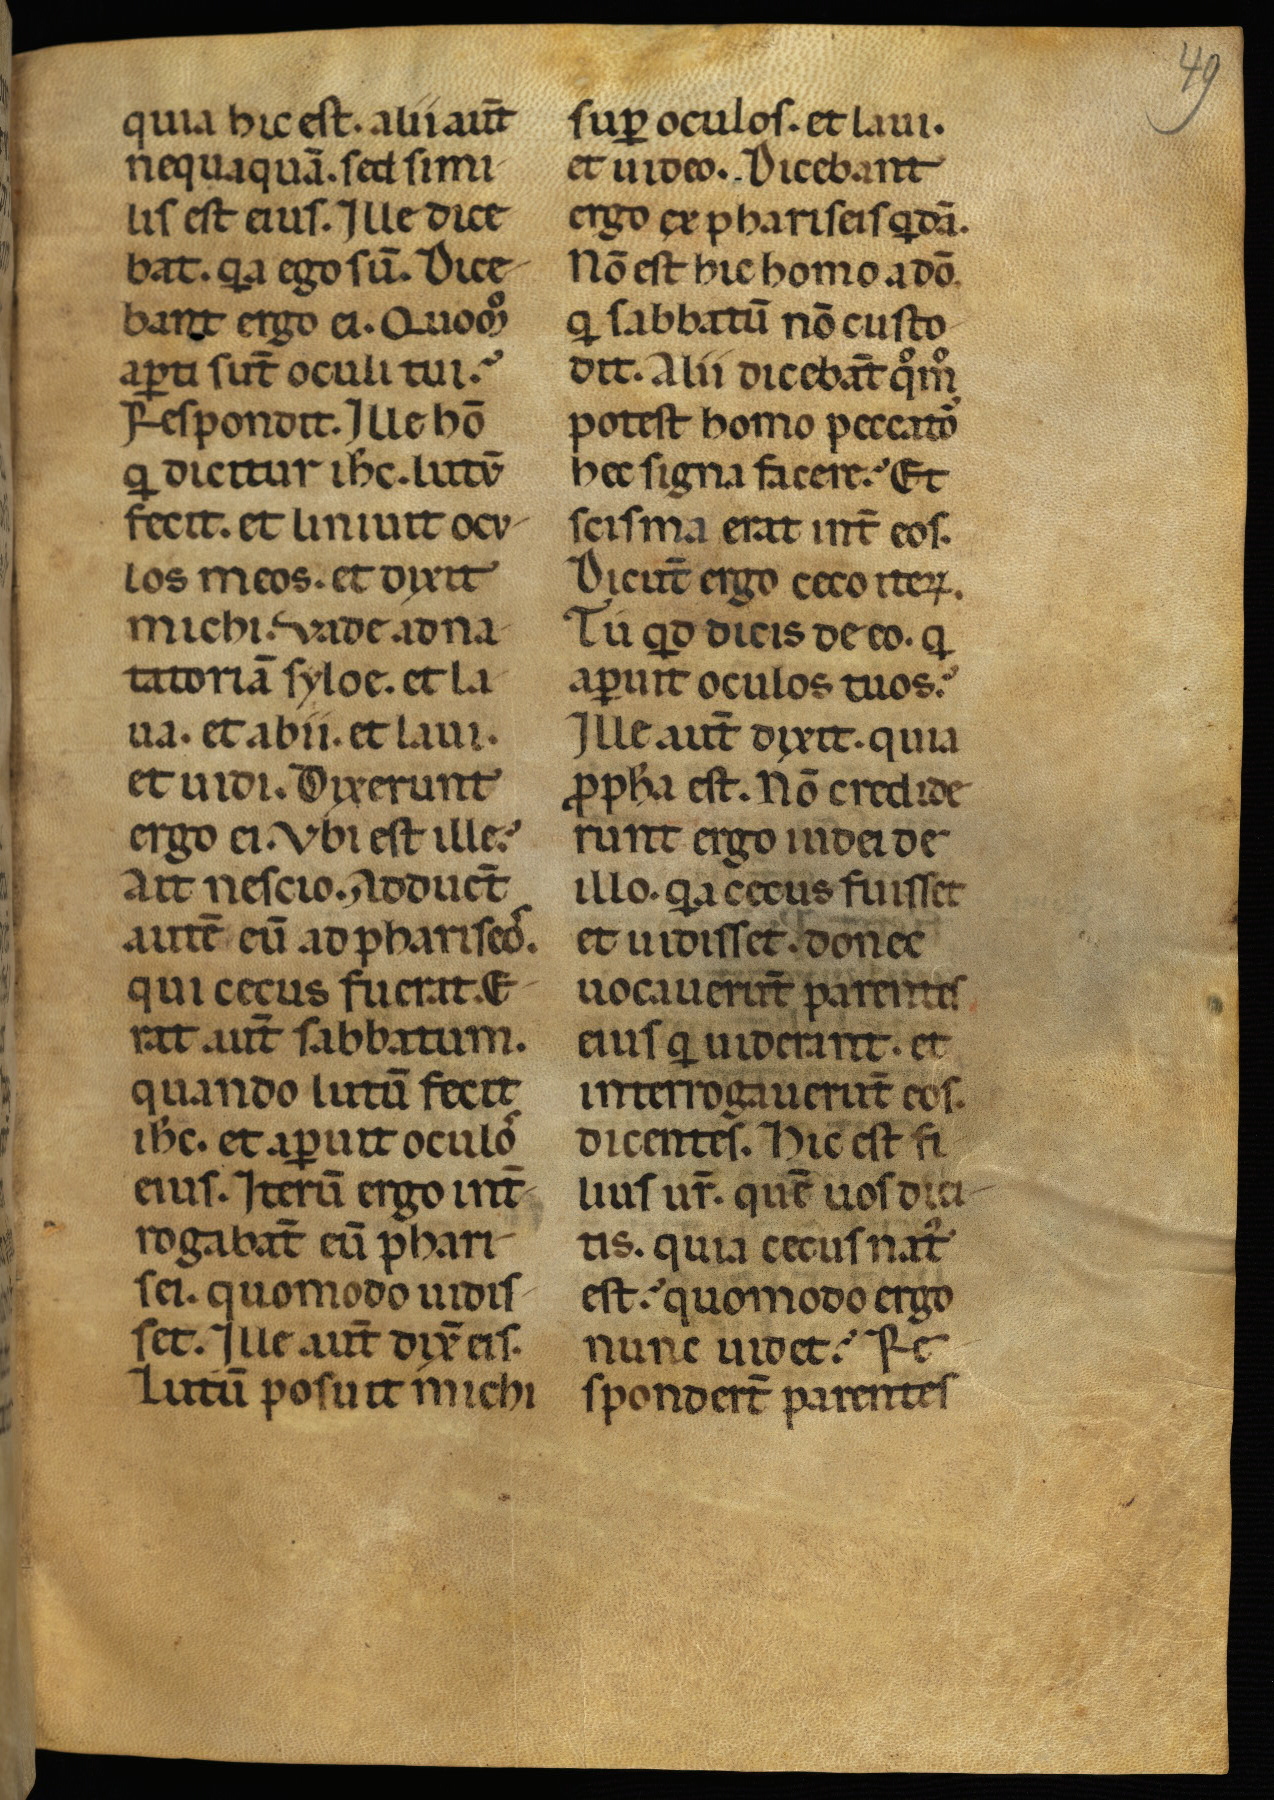 49
quia hic est. alii aut̄
nequaquā. sed simi-
lis est eius. Ille dice
bat. qa ego sū. Dice-
bant ergo ei. Quom̊
aꝑti sūt oculi tui?
Respondit. Ille hō
q dicitur ihc̄. lutū
fecit. et liniuit ocu-
los meos. et dixit
michi. Vade ad na-
tatoriā syloe. et la-
ua. et abii. et laui.
et uidi. Dixerunt
ergo ei. Vbi est ille?
Ait nescio. Adducūt
autē eū ad phariseos.
qui cecus fuerat. E-
rat aut̄ sabbatum.
quando lutū fecit
ihc̄. et aꝑuit oculos
eius. Iterū ergo int̄-
rogabāt eū phari-
sei. quomodo uidis-
set. Ille aut̄ dix̄ eis.
Lutū posuit michi
suꝑ oculos. et laui.
et uideo. Dicebant
ergo ex phariseis qdā.
Nō est hic homo a dō.
q sabbatū nō custo-
dit. Alii dicebāt qͦmͦ
potest homo peccatoꝛ
hec signa facere? Et
scisma erat int̄ eos.
Dicūt ergo ceco iteꝝ.
Tu qd dicis de eo. q
aꝑuit oculos tuos?
Ille aut̄ dixit. quia
ꝓpħa est. Nō credide
runt ergo iudei de
illo. qa cecus fuisset
et uidisset. donec
uocauerūt parentes
eius q uiderant. et
interrogauerūt eos.
dicentes. Hic est fi-
lius ur̄. quē uos dici-
tis. quia cecus nat᷑
est? quomodo ergo
nunc uidet? Re-
sponder̄t parentes